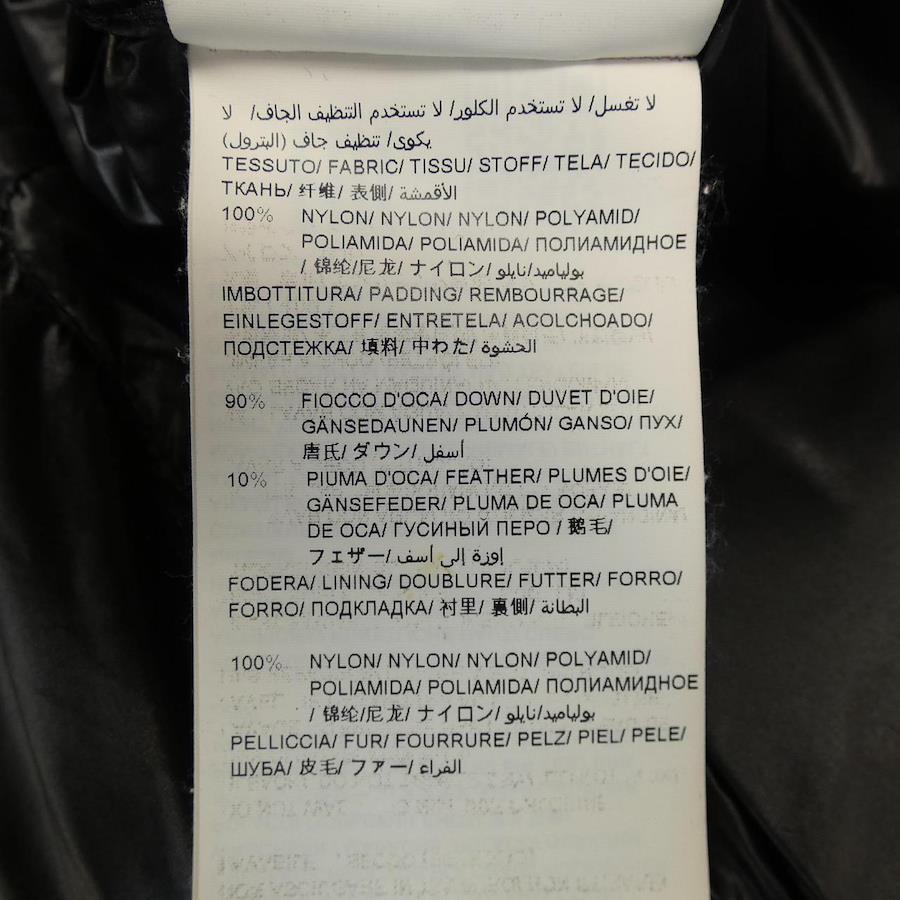 لا تغسل/ لا تستخدم الكلور/ لا تستخدم التنظيف الجاف/ لا
يكوى/ تنظيف جاف (البترول)
TESSUTO/ FABRIC/ TISSU/ STOFF/ TELA/ TECIDO/
ТКАНЬ/ 纤维/ 表側/ الأقمشة
100% NYLON/ NYLON/ NYLON/ POLYAMID/
POLIAMIDA/ POLIAMIDA/ ПОЛИАМИДНОЕ
/ 锦纶/尼龙/ ナイロン/ بولياميد/نايلو
IMBOTTITURA/ PADDING/ REMBOURRAGE/
EINLEGESTOFF/ ENTRETELA/ ACOLCHOADO/
ПОДСТЕЖКА/ 填料/ 中わた/ الحشوة
90% FIOCCO D'OCA/ DOWN/ DUVET D'OIE/
GÄNSEDAUNEN/ PLUMÓN/ GANSO/ ПУХ/
唐氏/ ダウン/ أسفل
10% PIUMA D'OCA/ FEATHER/ PLUMES D'OIE/
GÄNSEFEDER/ PLUMA DE OCA/ PLUMA
DE OCA/ ГУСИНЫЙ ПЕРО / 鹅毛/
フェザー/ إوزة إلى أسف
FODERA/ LINING/ DOUBLURE/ FUTTER/ FORRO/
FORRO/ ПОДКЛАДКА/ 衬里/ 裏側/ البطانة
100% NYLON/ NYLON/ NYLON/ POLYAMID/
POLIAMIDA/ POLIAMIDA/ ПОЛИАМИДНОЕ
/ 锦纶/尼龙/ ナイロン/ بولياميد/نايلو
PELLICCIA/ FUR/ FOURRURE/ PELZ/ PIEL/ PELE/
ШУБА/ 皮毛/ ファー/ الفراء